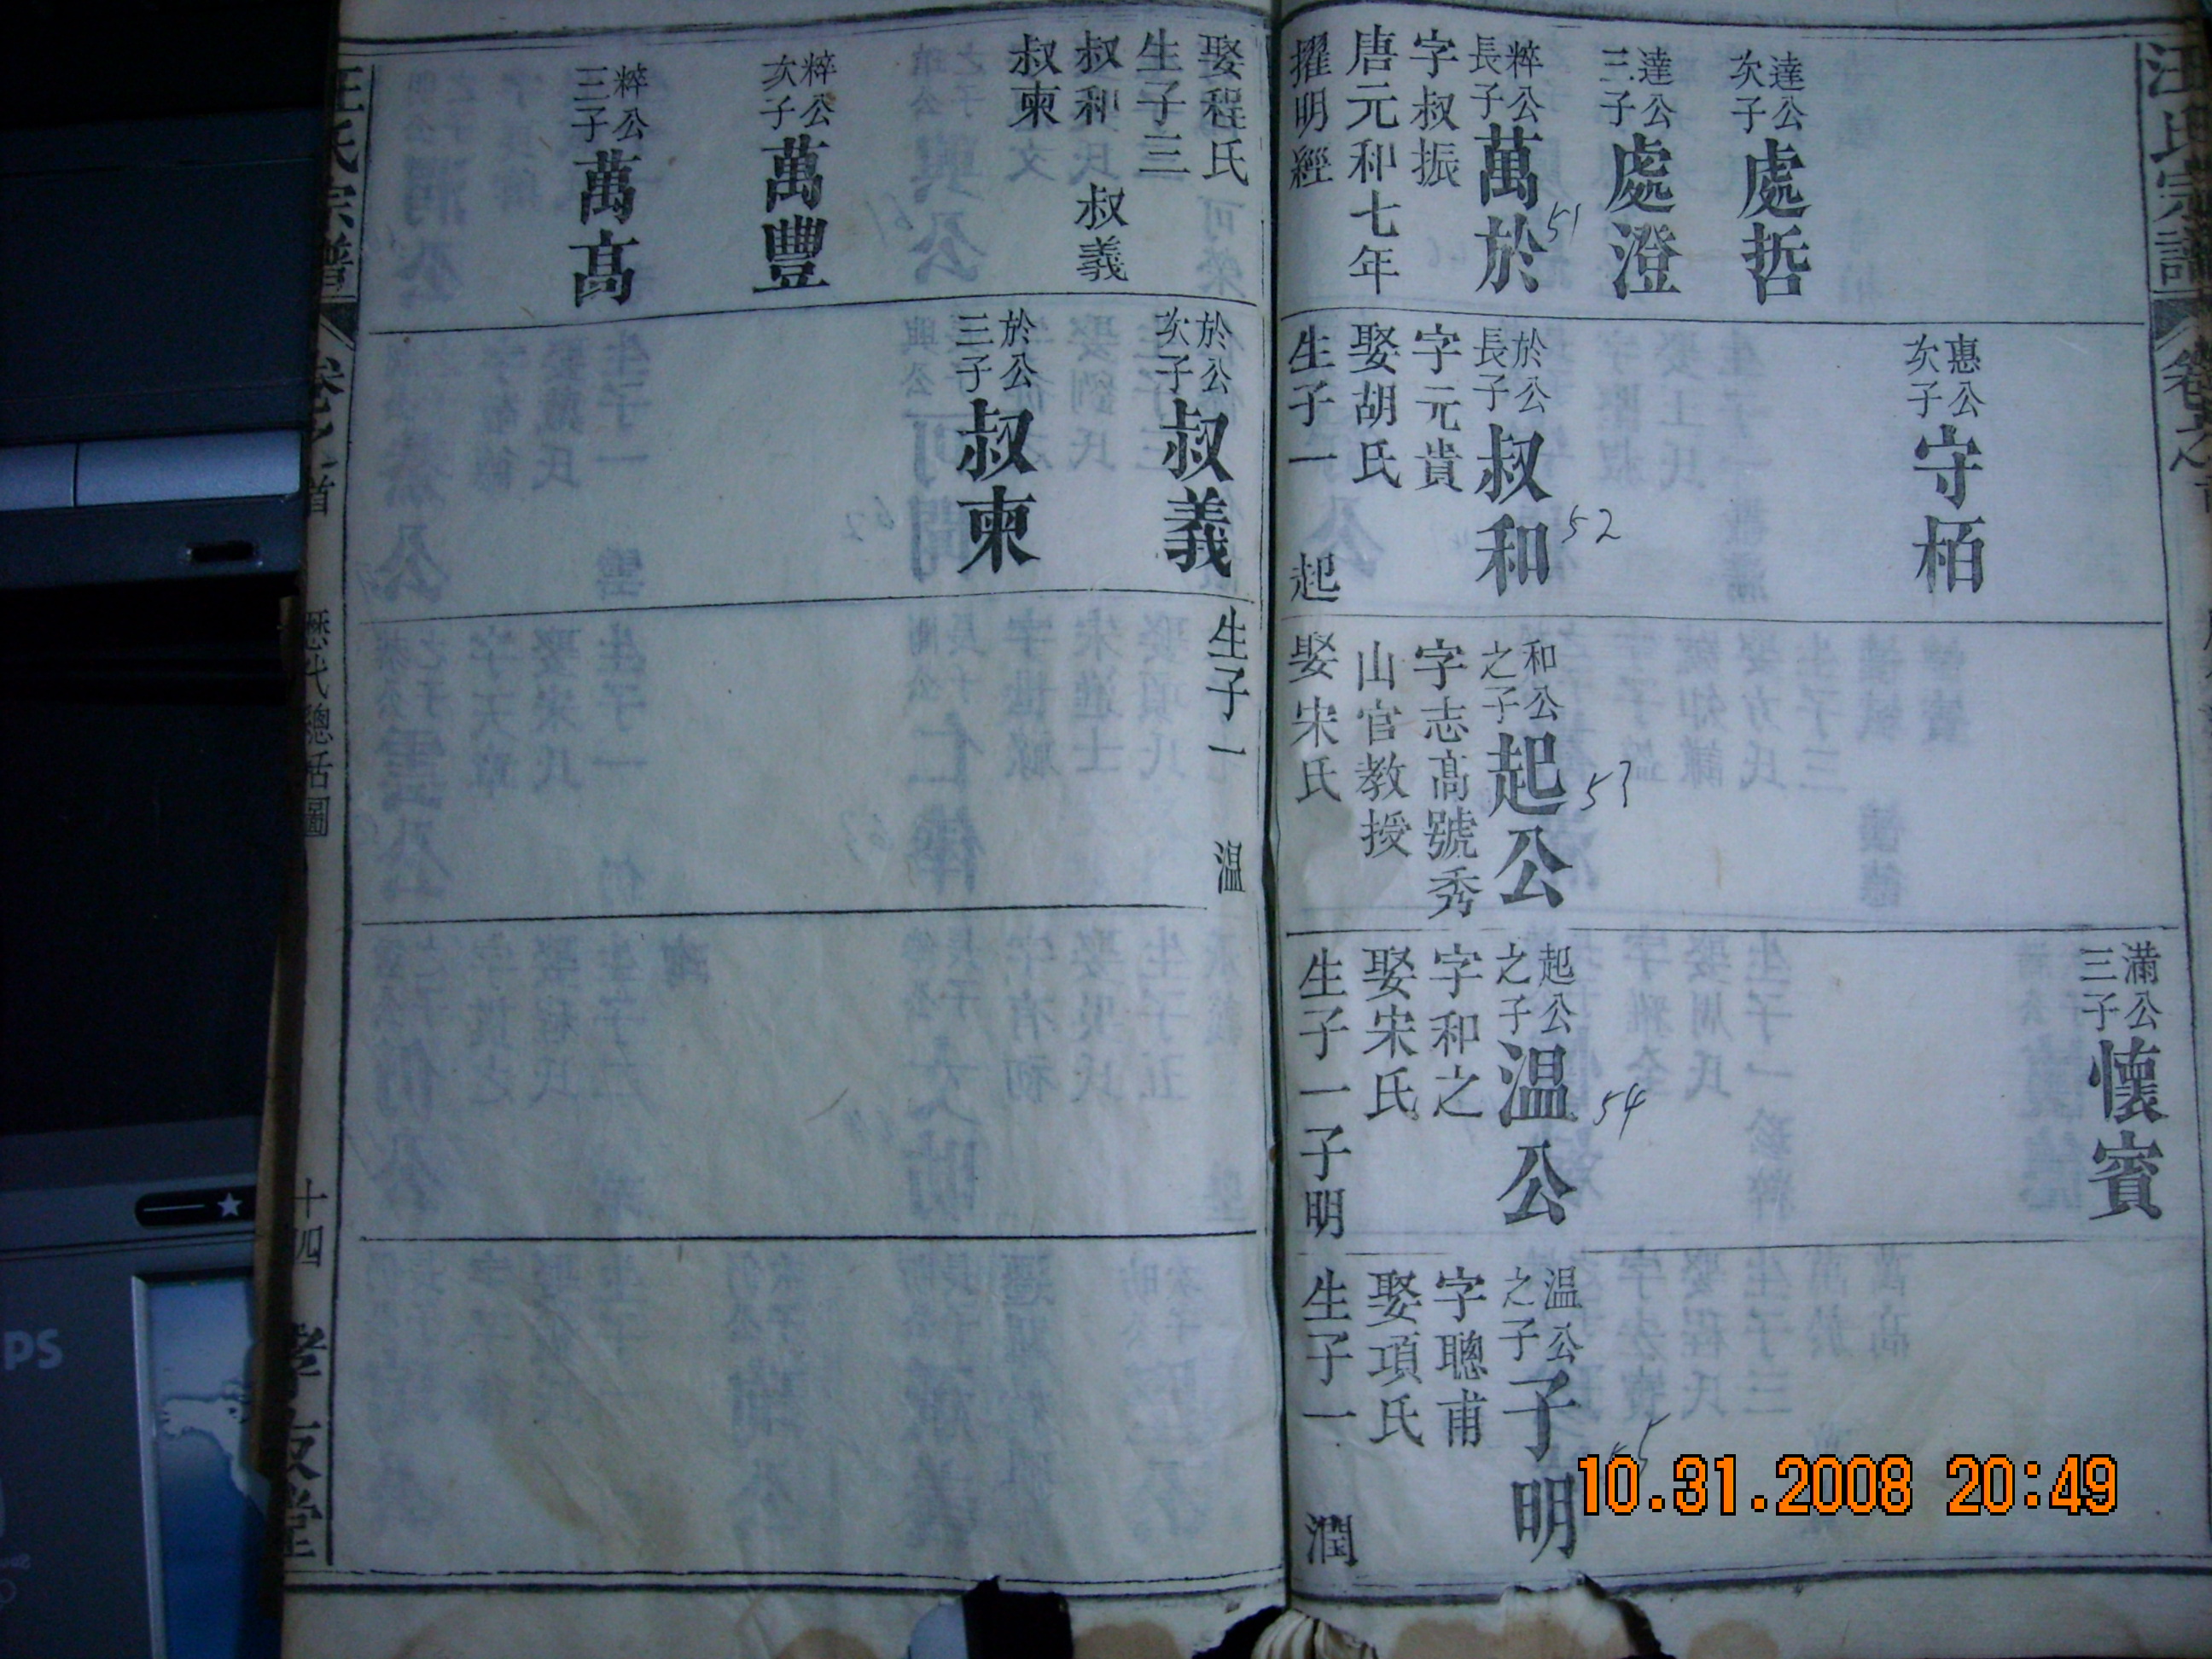 汪氏宗譜
卷之首
達公次子
處哲
達公三子
處澄
粹公長子
萬於
51
字叔振
唐元和七年
擢明經
惠公次子
守栢
於公長子
叔和
52
字元貴
娶胡氏
生子一 起
和公之子
起公
53
字志高號秀
山官教授
娶宋氏
滿公三子
懷賓
起公之子
温公
54
字和之
娶宋氏
生子一子明
温公之子
子明
55
字聰甫
娶項氏
生子一 潤
娶程氏
生子三
叔和 叔義
叔柬
粹公次子
萬豐
粹公三子
萬高
於公次子
叔義
於公三子
叔柬
生子一 温
汪氏宗譜
卷之首
歷代總括圖
十四
孝友堂
PS
10.31.2008 20:49